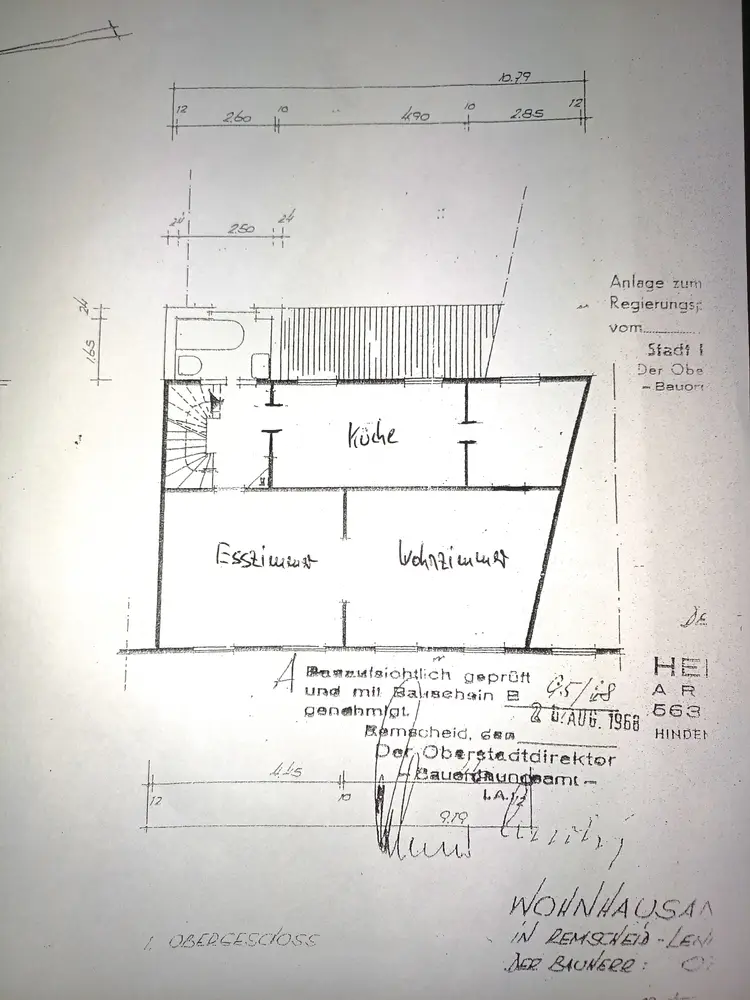 10.79
12 2.60 10 4.90 10 2.85 12
24 2.50 24
24
1.65
Anlage zum
Regierungsp
vom
Stadt
Der Obe
- Bauor
Küche
Esszimmer Wohnzimmer
HEI
A R
563
HINDEN
Bauaufsichtlich geprüft
und mit Bauschein B 95/68
genehmigt.
2 0. AUG. 1968
Remscheid, den
Der Oberstadtdirektor
- Bauordnungsamt -
I.A.
12 4.45 10
9.19
1. OBERGESCHOSS
WOHNHAUSAN
IN REMSCHEID - LEN
DER BAUHERR :